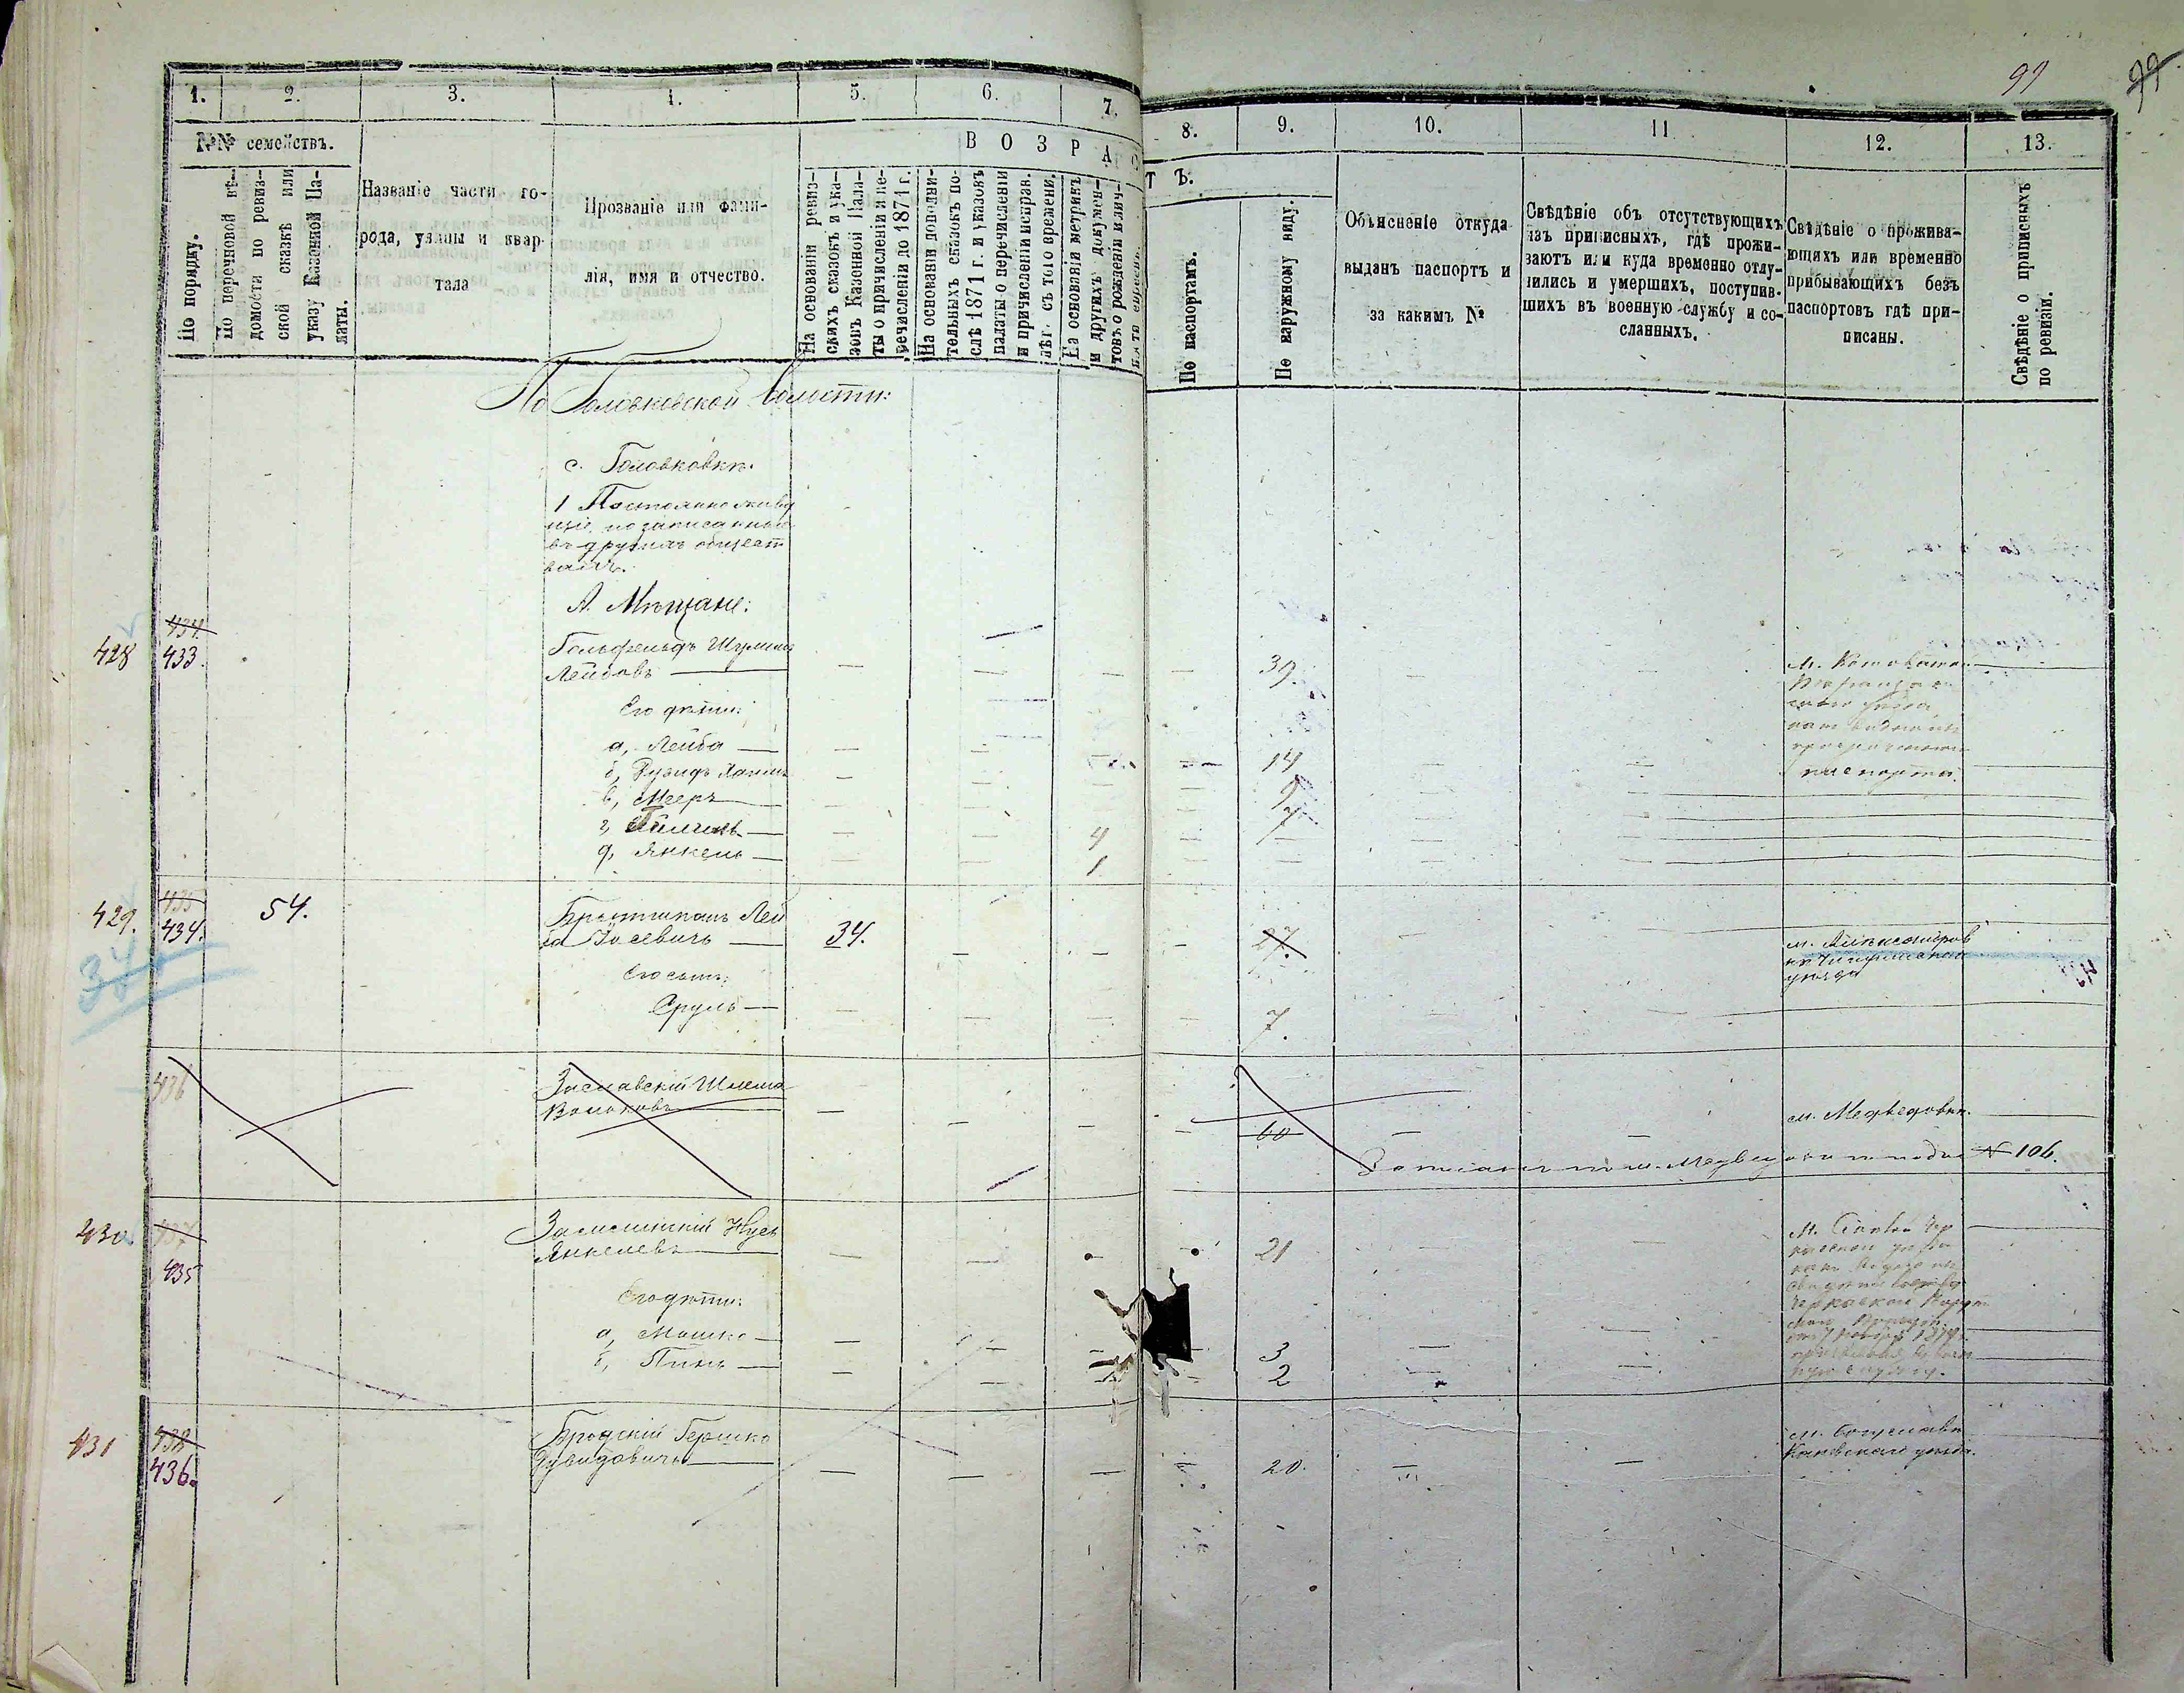 99
99
1. 2. 3. 4. 5. 6. 7. 8. 9. 10. 11 12. 13.
№№ семействъ.
В О З Р А С Т Ъ.
По порядку.
По перечневой вѣ-
домости по ревиз-
ской сказкѣ или
указу Казенной Па-
латы.
Названіе части го-
рода, улицы и квар-
тала
Прозваніе или фами-
лія, имя и отчество.
На основаніи ревиз-
скихъ сказокъ и ука-
зовъ Казенной Пала-
ты о причисленіи и пе-
речисленіи до 1871 г.
На основаніи дополни-
тельныхъ сказокъ по-
слѣ 1871 г. и указовъ
палаты о перечисленіи
и причисленіи исправ.
лѣт. съ того времени.
На основаніи метрикъ
и другихъ докумен-
товъ о рожденіи и лич-
По паспортамъ.
По наружному виду.
Объясненіе откуда
выданъ паспортъ и
за какимъ №
Свѣдѣніе объ отсутствующихъ
изъ приписныхъ, гдѣ прожи-
ваютъ или куда временно отлу-
чились и умершихъ, поступив-
шихъ въ военную службу и со-
сланныхъ.
Свѣдѣніе о прожива-
ющихъ или временно
прибывающихъ безъ
паспортовъ гдѣ при-
писаны.
Свѣдѣніе о приписныхъ
по ревизіи.
По Головковской Волости:
с. Головковкѣ.
1 Постоянно живу
щіе но записанные
въ другихъ общест
вахъ.
А. Мѣщане:
428 434 433. Гольфельдъ Шулимъ
Лейбовъ — — — — 39. — — м.
Его дѣти:
а, Лейба — — — — 14 — —
б, Дувидъ Хаимъ — — — — 9
паспорта.
в, Мееръ — — — — 7
г, — — 4 — —
д, Янкель — — 1 —
429. 435 434. 54. Лей
ба Іосевичъ 34. — — 27. — — м. Александров
ки Чигиринскаго
уѣзда
34
Его сынъ:
Сруль — — — — 7. — —
436 Заславскій Шлема
Вольковъ — — — — 60 — — м. Медведовки.
Записанъ по м. Медведовки подъ № 106.
430 437 435 Нусь
Янкелевъ — — — 21 — — м.
Черкаской
Его дѣти:
а, Мошко — — — — 3 — —
б, Пинь — — — — 2 — —
431 438 436. Бродскій Гершко
Дувидовичъ — — — — 20. — — м. Богуслава
Каневскаго уѣзда.